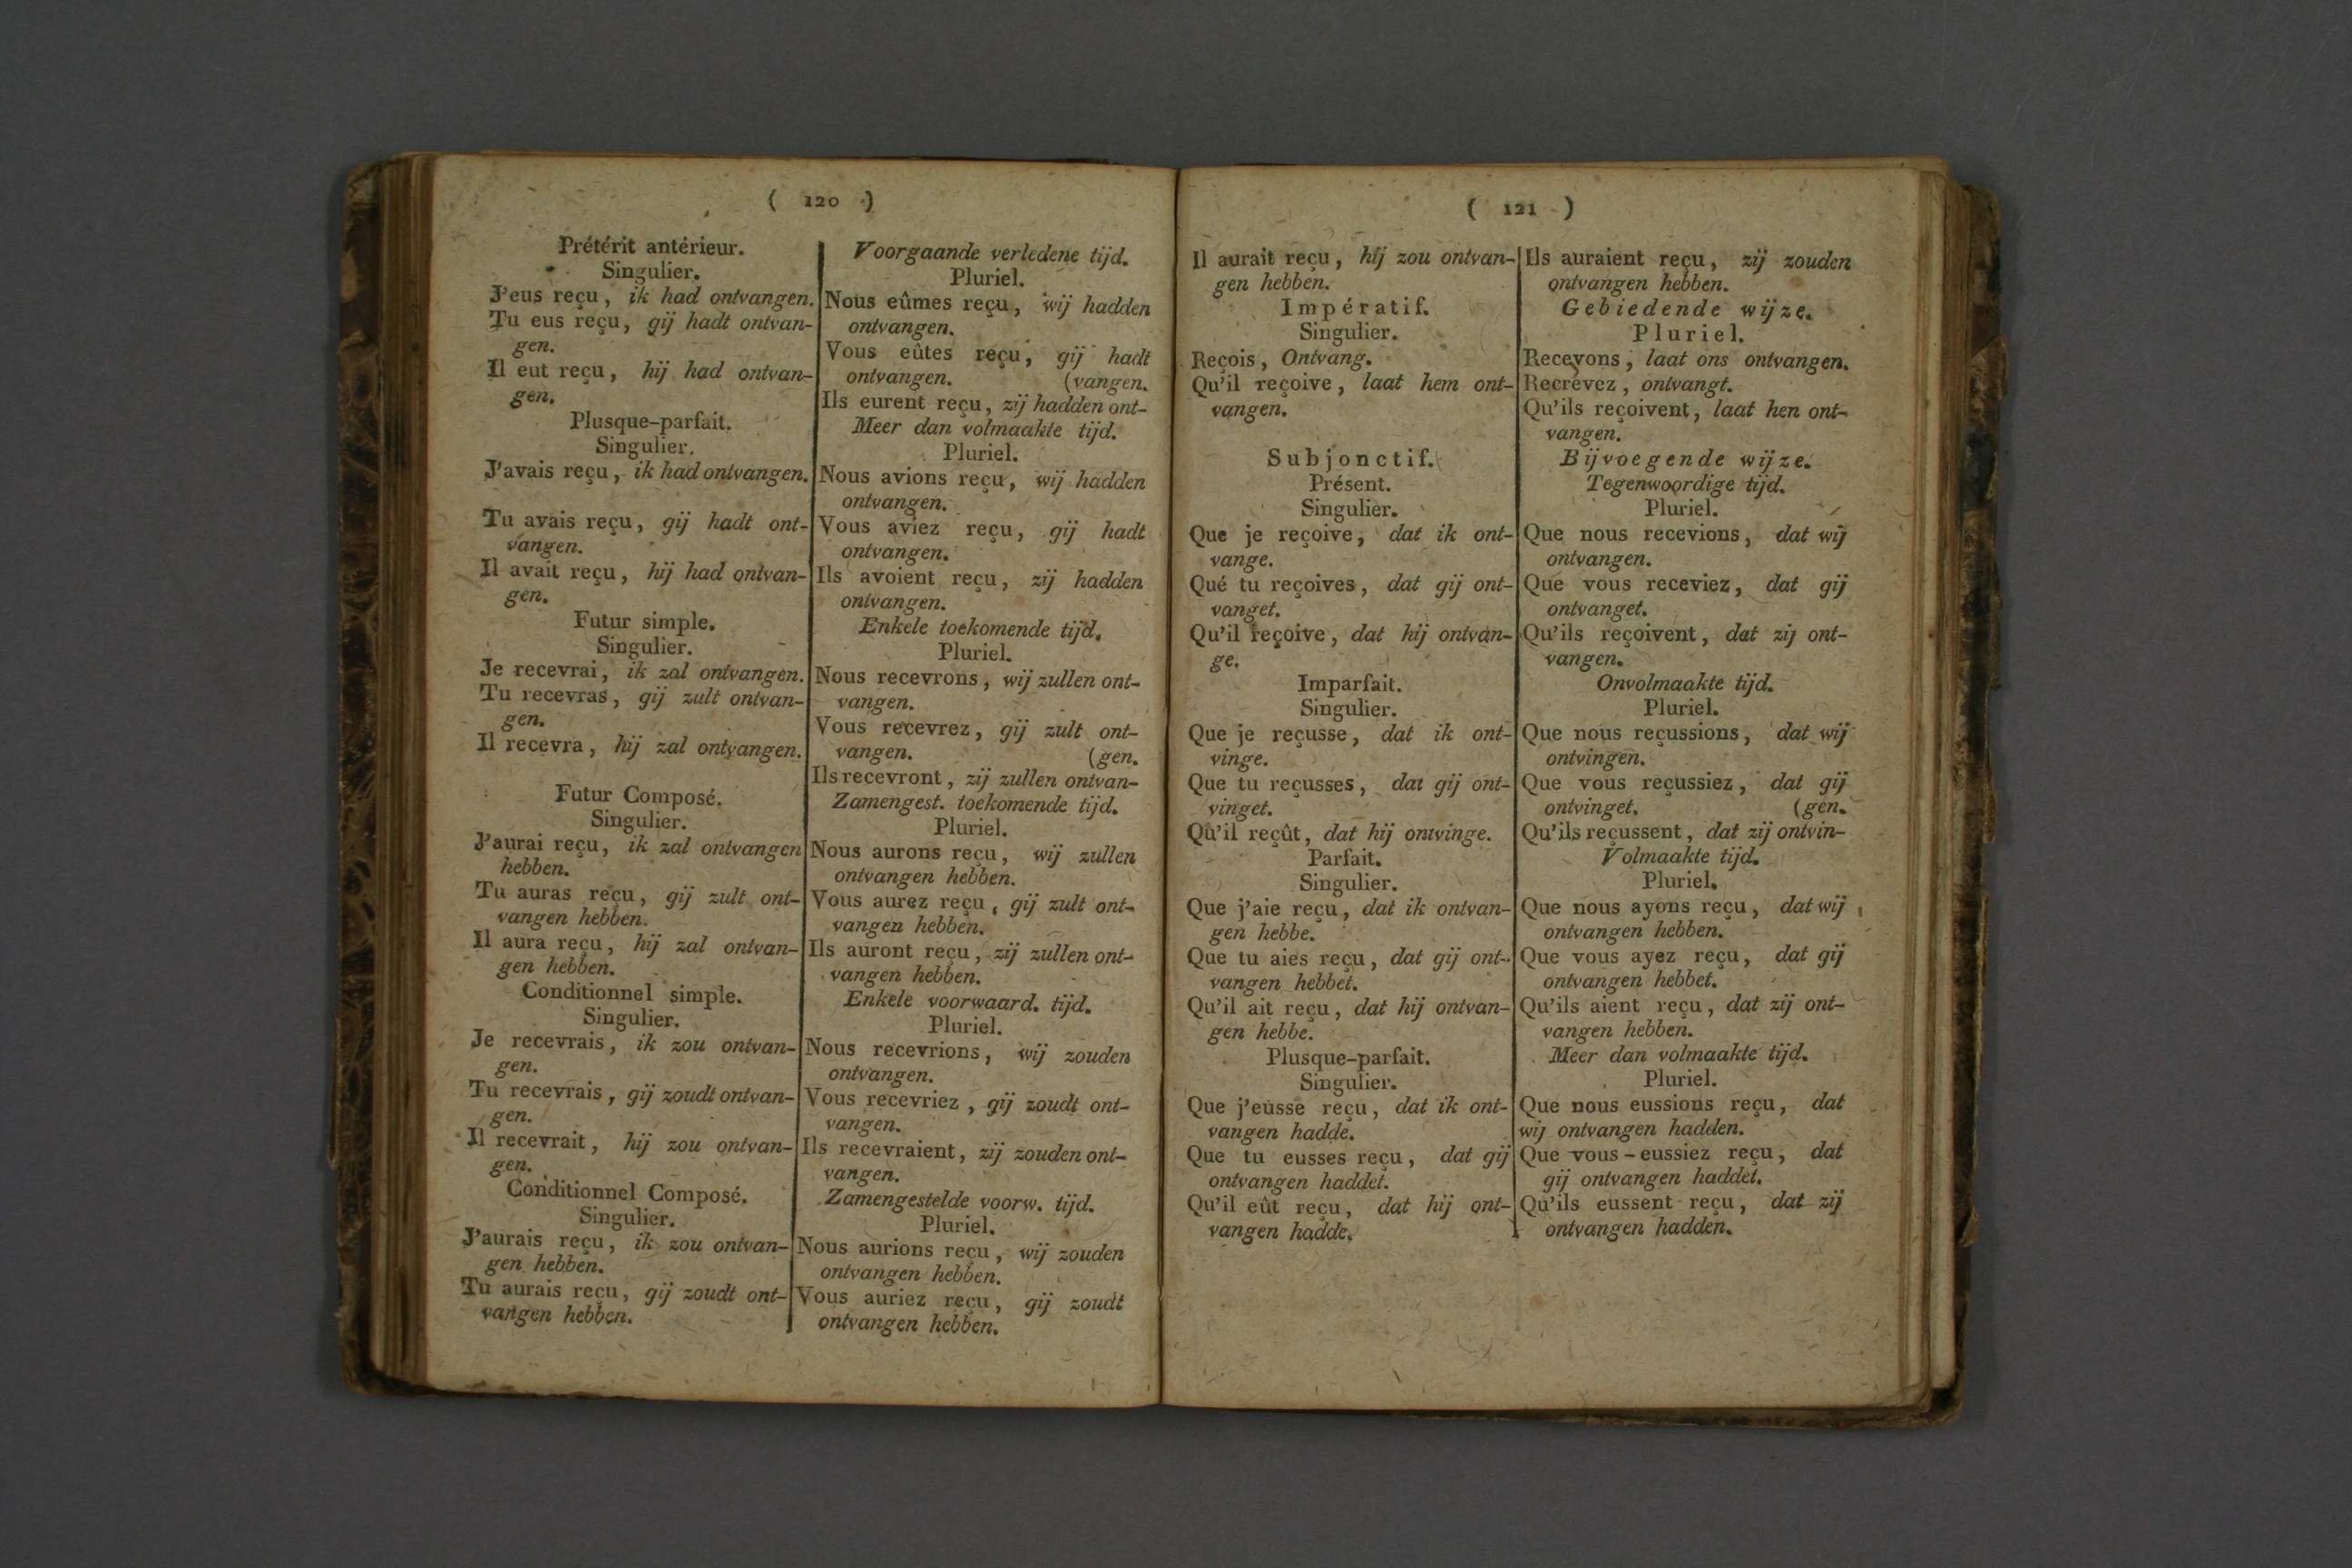 ( 120 )
Prétérit antérieur.
Singulier.
J'eus reçu, ik had ontvangen.
Tu eus reçu, gij hadt ontvan-
gen.
Il eut reçu, hij had ontvan-
gen.
Plusque-parfait.
Singulier.
J'avais reçu, ik had ontvangen.
Tu avais reçu, gij hadt ont-
vangen.
Il avait reçu, hij had ontvan-
gen.
Futur simple.
Singulier.
Je recevrai, ik zal ontvangen.
Tu recevras, gij zult ontvan-
gen.
Il recevra, hij zal ontvangen.
Futur Composé.
Singulier.
J'aurai reçu, ik zal ontvangen
hebben.
Tu auras reçu, gij zult ont-
vangen hebben.
Il aura reçu, hij zal ontvan-
gen hebben.
Conditionnel simple.
Singulier.
Je recevrais, ik zou ontvan-
gen.
Tu recevrais, gij zoudt ontvan-
gen.
Il recevrait, hij zou ontvan-
gen.
Conditionnel Composé.
Singulier.
J'aurais reçu, ik zou ontvan-
gen hebben.
Tu aurais reçu, gij zoudt ont-
vangen hebben.
Voorgaande verledene tijd.
Pluriel.
Nous eûmes reçu, wij hadden
ontvangen.
Vous eûtes reçu, gij hadt
ontvangen. (vangen.
Ils eurent reçu, zij hadden ont-
Meer dan volmaakte tijd.
Pluriel.
Nous avions reçu, wij hadden
ontvangen.
Vous aviez reçu, gij hadt
ontvangen.
Ils avoient reçu, zij hadden
ontvangen.
Enkele toekomende tijd.
Pluriel.
Nous recevrons, wij zullen ont-
vangen.
Vous recevrez, gij zult ont-
vangen. (gen.
Ils recevront, zij zullen ontvan-
Zamengest. toekomende tijd.
Pluriel.
Nous aurons reçu, wij zullen
ontvangen hebben.
Vous aurez reçu, gij zult ont-
vangen hebben.
Ils auront reçu, zij zullen ont-
vangen hebben.
Enkele voorwaard. tijd.
Pluriel.
Nous recevrions, wij zouden
ontvangen.
Vous recevriez, gij zoudt ont-
vangen.
Ils recevraient, zij zouden ont-
vangen.
Zamengestelde voorw. tijd.
Pluriel.
Nous aurions reçu, wij zouden
ontvangen hebben.
Vous auriez reçu, gij zoudt
ontvangen hebben.
( 121 )
Il aurait reçu, hij zou ontvan-
gen hebben.
Impératif.
Singulier.
Reçois, Ontvang.
Qu'il reçoive, laat hem ont-
vangen.
Subjonctif.
Présent.
Singulier.
Que je reçoive, dat ik ont-
vange.
Qué tu reçoives, dat gij ont-
vanget.
Qu'il reçoive, dat hij ontvan-
ge.
Imparfait.
Singulier.
Que je reçusse, dat ik ont-
vinge.
Que tu reçusses, dat gij ont-
vinget.
Qu'il reçût, dat hij ontvinge.
Parfait.
Singulier.
Que j'aie reçu, dat ik ontvan-
gen hebbe.
Que tu aies reçu, dat gij ont-
vangen hebbet.
Qu'il ait reçu, dat hij ontvan-
gen hebbe.
Plusque-parfait.
Singulier.
Que j'eusse reçu, dat ik ont-
vangen hadde.
Que tu eusses reçu, dat gij
ontvangen haddet.
Qu'il eût reçu, dat hij ont-
vangen hadde.
Ils auraient reçu, zij zouden
ontvangen hebben.
Gebiedende wijze.
Pluriel.
Recevons, laat ons ontvangen.
Recrevez, ontvangt.
Qu'ils reçoivent, laat hen ont-
vangen.
Bijvoegende wijze.
Tegenwoordige tijd.
Pluriel.
Que nous recevions, dat wij
ontvangen.
Que vous receviez, dat gij
ontvanget.
Qu'ils reçoivent, dat zij ont-
vangen.
Onvolmaakte tijd.
Pluriel.
Que nous reçussions, dat wij
ontvingen.
Que vous reçussiez, dat gij
ontvinget. (gen.
Qu'ils reçussent, dat zij ontvin-
Volmaakte tijd.
Pluriel.
Que nous ayons reçu, dat wij
ontvangen hebben.
Que vous ayez reçu, dat gij
ontvangen hebbet.
Qu'ils aient reçu, dat zij ont-
vangen hebben.
Meer dan volmaakte tijd.
Pluriel.
Que nous eussions reçu, dat
wij ontvangen hadden.
Que vous-eussiez reçu, dat
gij ontvangen haddet.
Qu'ils eussent reçu, dat zij
ontvangen hadden.